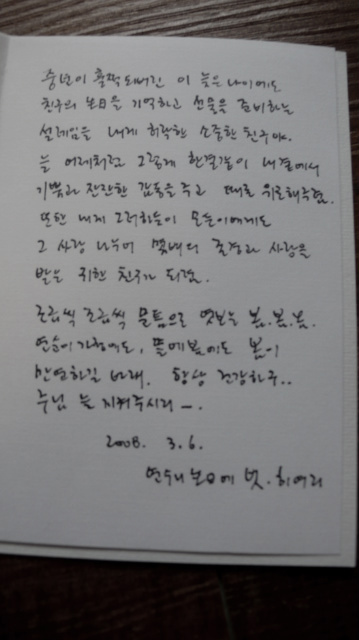 중년이 훌쩍 되버린 이 늦은 나이에도
친구의 生日을 기억하고 선물을 준비하는
설레임을 내게 허락한 소중한 친구야.
늘 어제처럼 그렇게 한결같이 내곁에서
기쁨과 잔잔한 감동을 주고 때로 위로해주렴.
또한 내게 그러하듯이 모든이에게도
그 사랑 나누어 몇배의 존경과 사랑을
받을 귀한 친구가 되렴.
조금씩 조금씩 문틈으로 엿보는 봄.봄.봄.
연숙이 가정에도, 뜰에 봄에도 봄이
만연하길 바래. 항상 건강하구..
주님 늘 지켜주시리 —.
2008. 3. 6.
生日에 벗.